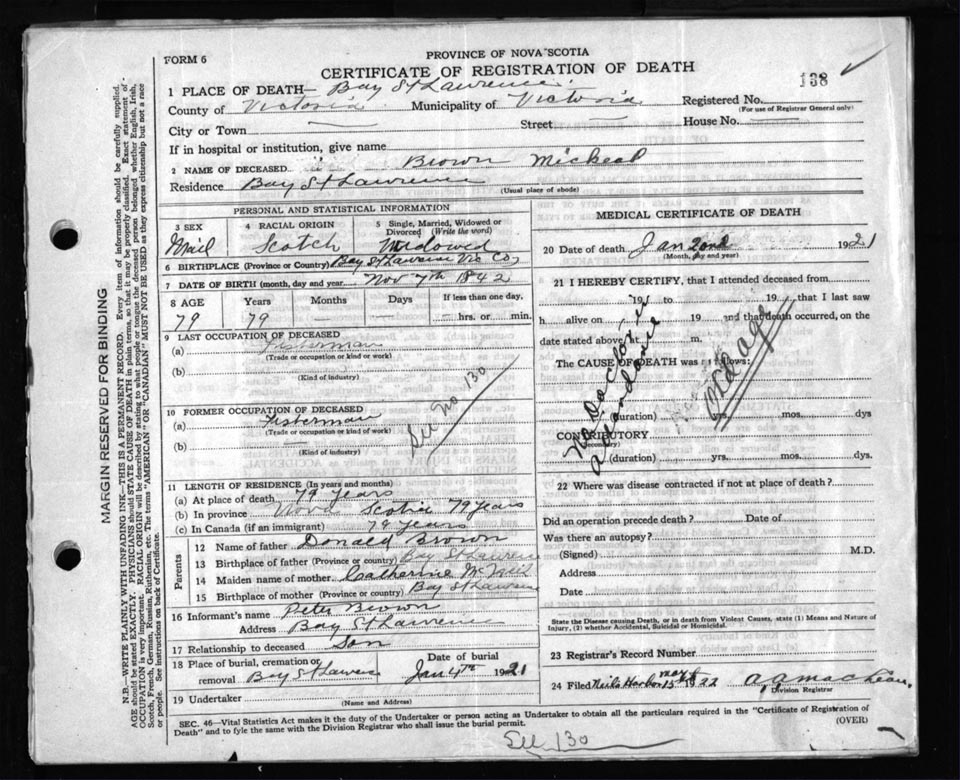 FORM 6
PROVINCE OF NOVA SCOTIA
CERTIFICATE OF REGISTRATION OF DEATH
138
1 PLACE OF DEATH— Bay St Lawrence
County of Victoria Municipality of Victoria Registered No.
(For use of Registrar General only)
City or Town — Street — House No. —
If in hospital or institution, give name
2 NAME OF DECEASED Brown Micheal
Residence Bay St Lawrence (Usual place of abode)
PERSONAL AND STATISTICAL INFORMATION
3 SEX 4 RACIAL ORIGIN 5 Single, Married, Widowed or Divorced (Write the word)
Mail Scotch Widowed
6 BIRTHPLACE (Province or Country) Bay St Lawrence Vic Co,
7 DATE OF BIRTH (month, day and year) Nov 7th 1842
8 AGE Years Months Days If less than one day,
79 79 — — hrs. or min.
9 LAST OCCUPATION OF DECEASED
(a) Fisherman
(Trade or occupation or kind or work)
(b)
(Kind of industry)
See No 130
10 FORMER OCCUPATION OF DECEASED
(a) Fisterman
(Trade or occupation or kind of work)
(b) —
(Kind of industry)
11 LENGTH OF RESIDENCE (In years and months)
(a) At place of death 79 years
(b) In province Nova Scotia 79 years
(c) In Canada (if an immigrant) 79 years
Parents
12 Name of father Donald Brown
13 Birthplace of father (Province or country) Bay St Lawrence
14 Maiden name of mother Catherine McNeil
15 Birthplace of mother (Province or country) Bay St Lawrence
16 Informant's name Peter Brown
Address Bay St Lawrence
17 Relationship to deceased Son
18 Place of burial, cremation or removal Bay St Lawren Date of burial Jan 4th 1921
19 Undertaker
(Name and Address)
MEDICAL CERTIFICATE OF DEATH
20 Date of death Jan 2nd 1921
(Month, day and year)
21 I HEREBY CERTIFY, that I attended deceased from
191 to 19 that I last saw
h alive on 19 and that death occurred, on the
date stated above, at m.
The CAUSE OF DEATH was as follows:
No Doctor in attendance
old age
(duration) yrs. mos. dys
CONTRIBUTORY
(duration) yrs. mos. dys.
22 Where was disease contracted if not at place of death?
Did an operation precede death? Date of
Was there an autopsy?
(Signed) M.D.
Address
Date
State the Disease causing Death, or in death from Violent Causes, state (1) Means and Nature of Injury, (2) whether Accidental, Suicidal or Homicidal.
23 Registrar's Record Number
24 Filed Neils Harbor 15 1922 A, A MacLean,
Division Registrar
SEC. 46—Vital Statistics Act makes it the duty of the Undertaker or person acting as Undertaker to obtain all the particulars required in the "Certificate of Registration of
Death" and to fyle the same with the Division Registrar who shall issue the burial permit. (OVER)
See 130
MARGIN RESERVED FOR BINDING
N.B.—WRITE PLAINLY WITH UNFADING INK—THIS IS A PERMANENT RECORD. Every item of information should be carefully supplied.
AGE should be stated EXACTLY. PHYSICIANS should STATE CAUSE OF DEATH in plain terms, so that it may be properly classified. Exact statement of
OCCUPATION is very important. RACIAL ORIGIN will be described by stating to what people or tongue the deceased person belonged whether English, Irish,
Scotch, French, German, Russian, Ruthenian, etc. The terms "AMERICAN" OR "CANADIAN" MUST NOT BE USED as they express citizenship but not a race
or people. See instructions on back of Certificate.